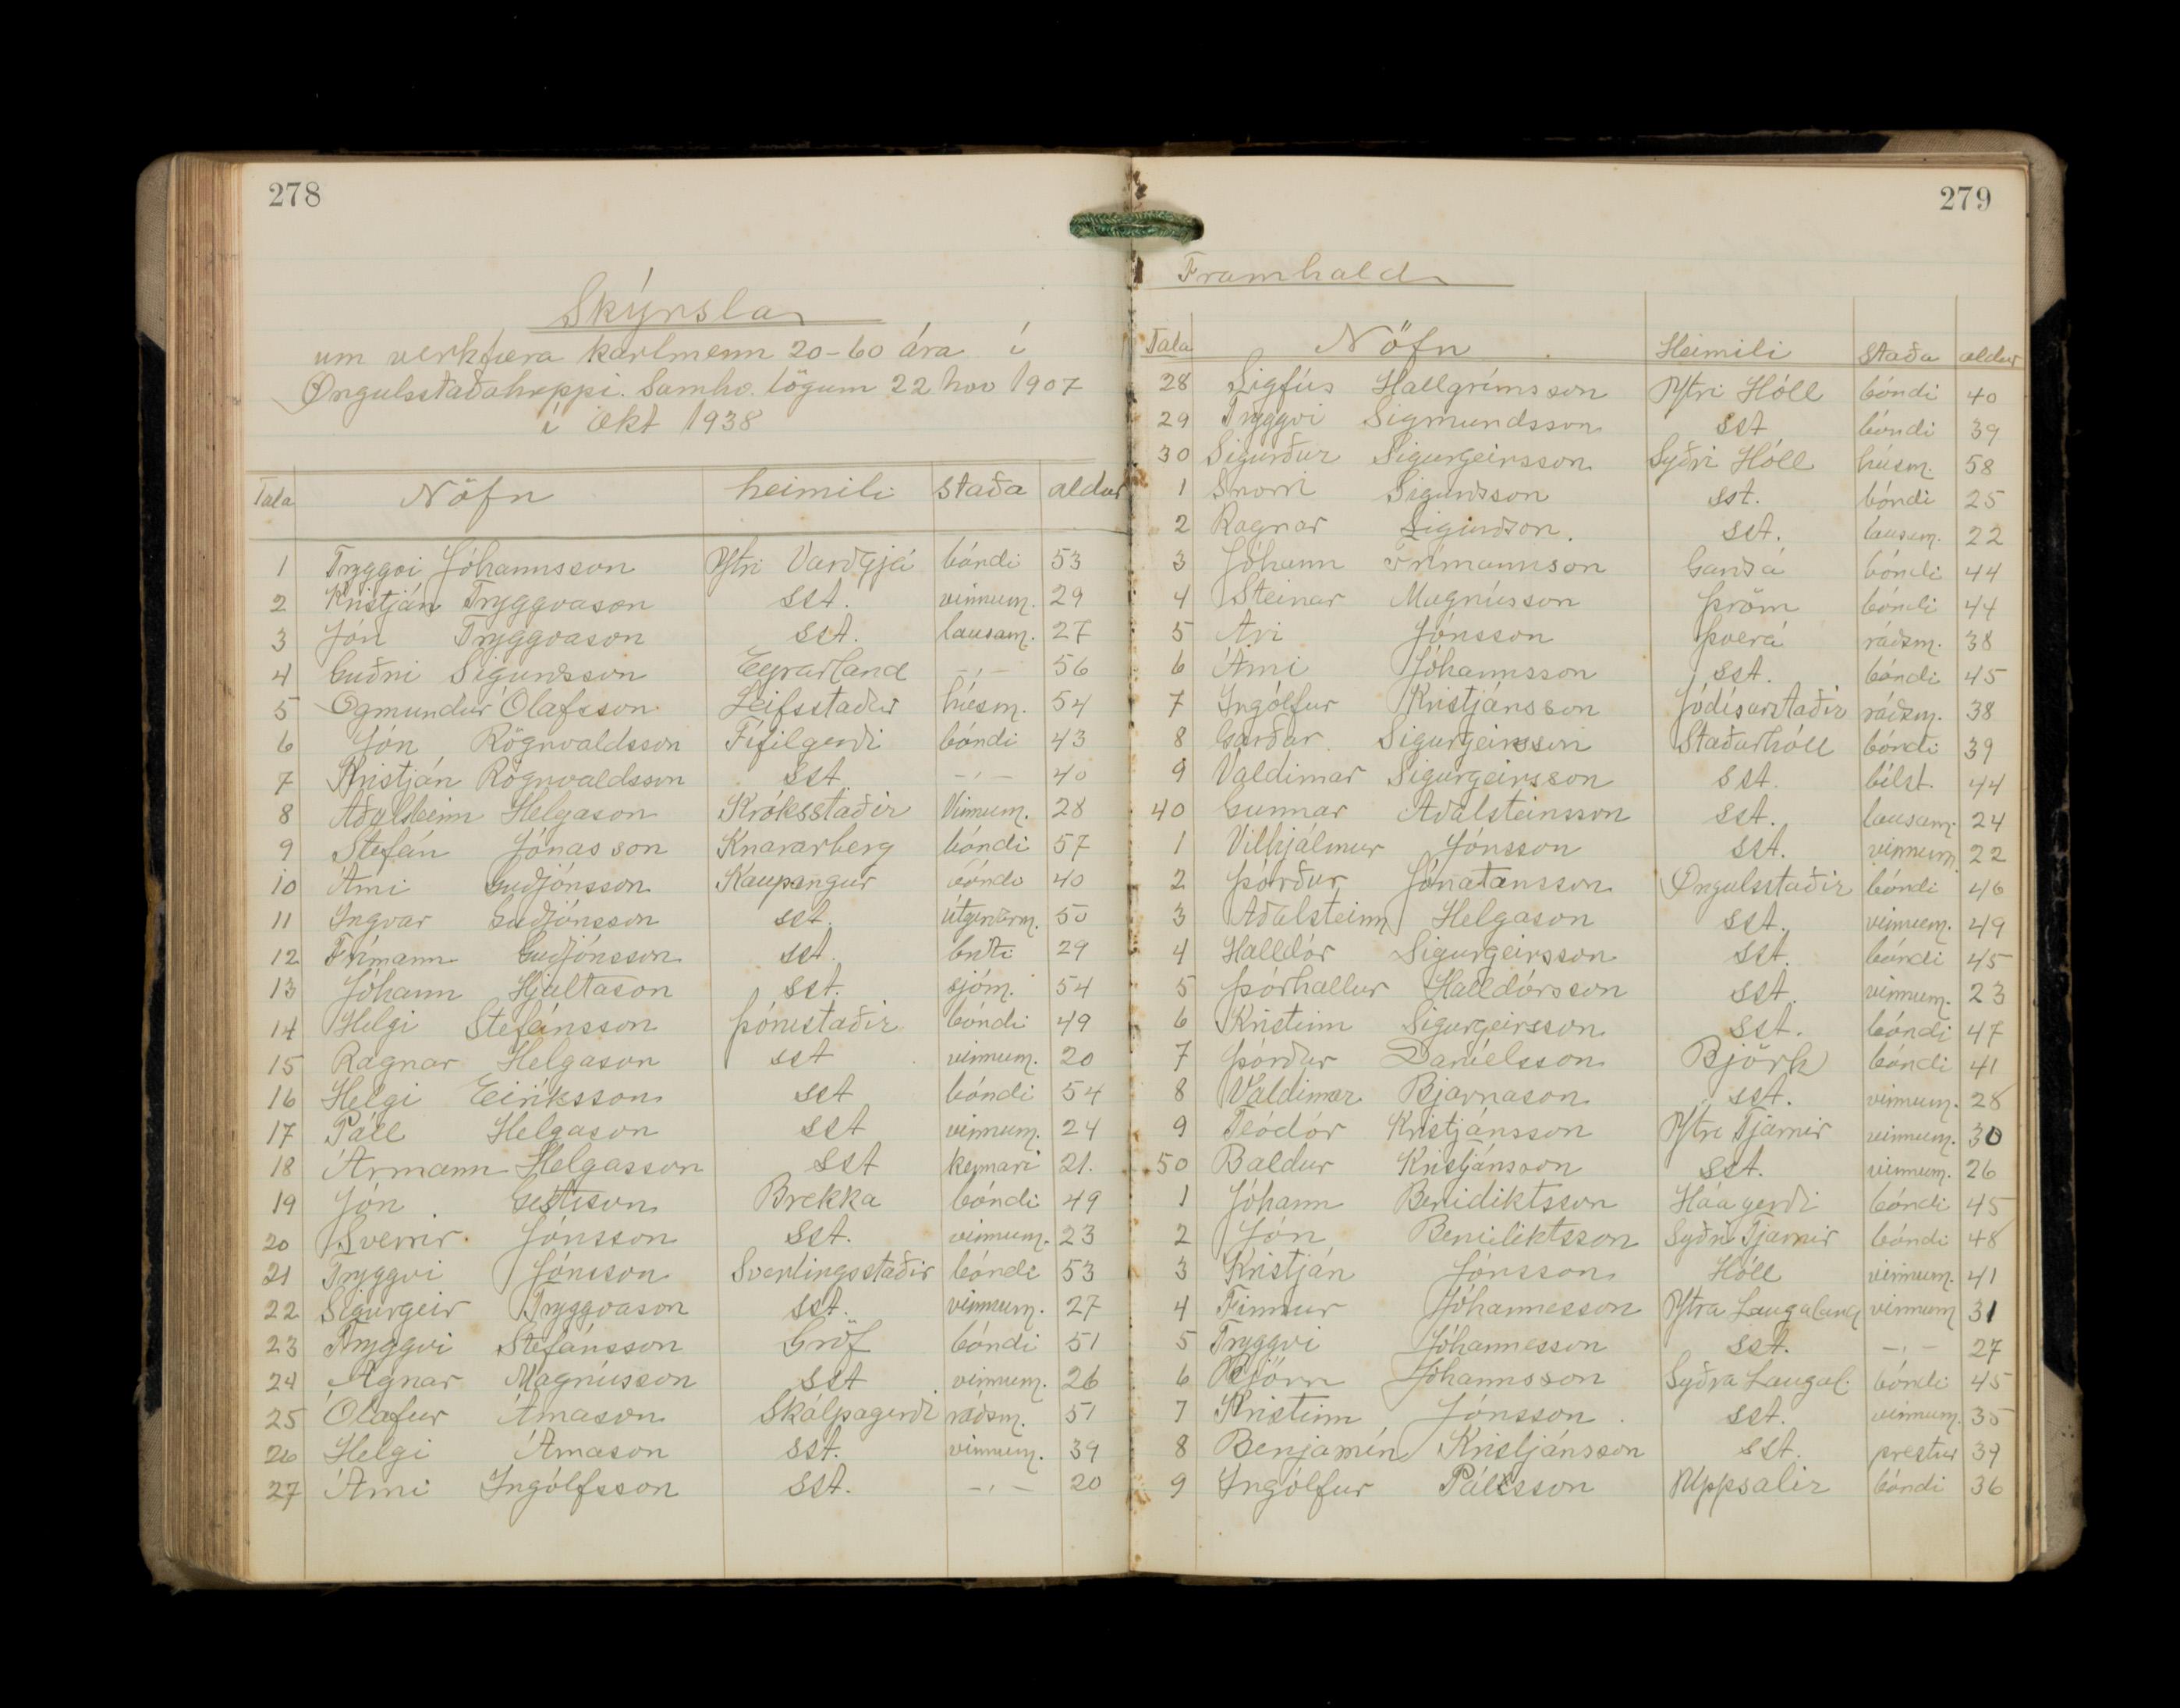 278
Skýrsla
um verkfæra karlmenn 20-60 ára í
Öngulsstaðahreppi. Samkv. lögum 22 nov 1907
í okt 1938
Tala Nöfn heimili staða aldur
1 Tryggvi Jóhannsson Ytri Varðgjá bóndi 53
2 Kristján Tryggvason sst. vinnum. 29
3 Jón Tryggvason sst. lausam. 27
4 Guðni Sigurðsson Eyrarland -,- 56
5 Ögmundur Ólafsson Leifsstaðir húsm. 54
6 Jón Rögnvaldsson Fífilgerði bóndi 43
7 Kristján Rögnvaldsson sst -,- 40
8 Aðalsteinn Helgason Króksstaðir Vinnum. 28
9 Stefán Jónasson Knararberg bóndi 57
10 Árni Guðjónsson Kaupangur bóndi 40
11 Ingvar Guðjónsson sst. útgerðrm. 50
12 Frímann Guðjónsson sst. bryti 29
13 Jóhann Hjaltason sst. sjóm. 54
14 Helgi Stefánsson Þórustaðir bóndi 49
15 Ragnar Helgason sst vinnum. 20
16 Helgi Eiríksson sst bóndi 54
17 Páll Helgason sst vinnum. 24
18 Ármann Helgasson sst kennari 21.
19 Jón Gestsson Brekka bóndi 49
20 Sverrir Jónsson sst. vinnum. 23
21 Tryggvi Jónsson Svertingsstaðir bóndi 53
22 Sigurgeir Tryggvason sst. vinnum. 27
23 Tryggvi Stefánsson Gröf bóndi 51
24 Agnar Magnússon sst vinnum. 26
25 Ólafur Árnason Skálpagerði ráðsm. 51
26 Helgi Árnason sst. vinnum. 39
27 Árni Ingólfsson sst. -,- 20
279
Framhald
Tala Nöfn Heimili staða aldur
28 Sigfús Hallgrímsson Ytri Hóll bóndi 40
29 Tryggvi Sigmundsson sst bóndi 39
30 Sigurður Sigurgeirsson Syðri Hóll húsm. 58
1 Snorri Sigurðsson sst. bóndi 25
2 Ragnar Sigurðson. sst. lausam. 22
3 Jóhann Frímannson Garðsá bóndi 44
4 Steinar Magnússon Þröm bóndi 44
5 Ari Jónsson Þverá ráðsm. 38
6 Árni Jóhannsson sst. bóndi 45
7 Ingólfur Kristjánsson Jódísarstaðir ráðsm. 38
8 Garðar Sigurgeirsson Staðarhóll bóndi 39
9 Valdimar Sigurgeirsson sst. bílst. 44
40 Gunnar Aðalsteinsson sst. lausam. 24
1 Vilhjálmur Jónsson sst. vinnum. 22
2 Þorður Jónatansson Öngulsstaðir bóndi 46
3 Aðalsteinn Helgason sst. vinnum. 49
4 Halldór Sigurgeirsson sst. bóndi 45
5 Þórhallur Halldórsson sst. vinnum. 23
6 Kristinn Sigurgeirsson sst. bóndi 47
7 Þórður Daníelsson Björk bóndi 41
8 Valdimar Bjarnason sst. vinnum. 28
9 Teódór Kristjánsson Ytri Tjarnir vinnum. 30
50 Baldur Kristjánsson sst. vinnum. 26
1 Jóhann Benidiktsson Háagerði bóndi 45
2 Jón Benidiktsson Syðri Tjarnir bóndi 48
3 Kristján Jónsson Hóll vinnum. 41
4 Finnur Jóhannesson Ytra Laugaland vinnum 31
5 Tryggvi Jóhannesson sst. -,- 27
6 Björn Jóhannsson Syðra Laugal. bóndi 45
7 Kristinn Jónsson sst. vinnum. 35
8 Benjamín Kristjánsson sst. prestur 39
9 Ingólfur Pálsson Uppsalir bóndi 36